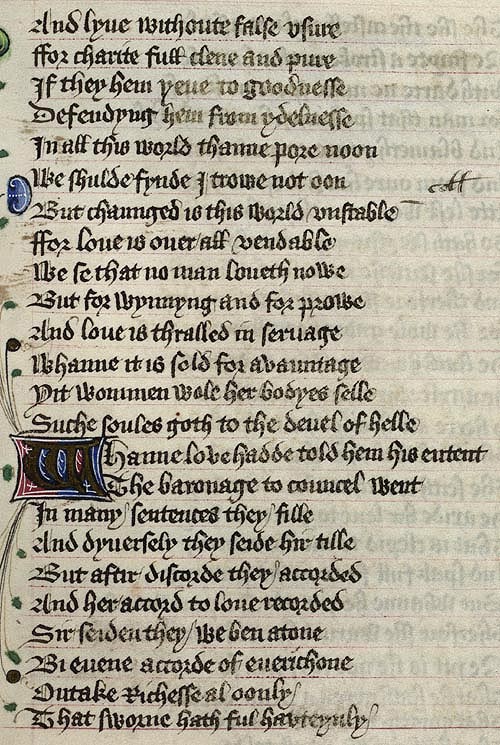 And lyue withoute false vsure
ffor charite full clene and pure
If they hem yeue to goodnesse
Defendyng hem from ydelnesse
In all this world thanne pore noon
We shulde fynde I trowe not oon
But chaunged is this world vnstable
ffor loue is ouer all vendable
We se that no man loueth nowe
But for wynnyng and for prowe
And loue is thralled in seruage
Whanne it is sold for auauntage
Yit wommen wole her bodyes selle
Suche soules goth to the deuel of helle
Whanne love hadde told hem his entent
The baronage to councel went
In many sentences they fille
And dyuersely they seide hir tille
But aftir discorde they accorded
And her accord to loue recorded
Sir seiden they we ben atone
Bi euene accorde of euerichone
Outake Richesse al oonly
That sworne hath ful hauteynly